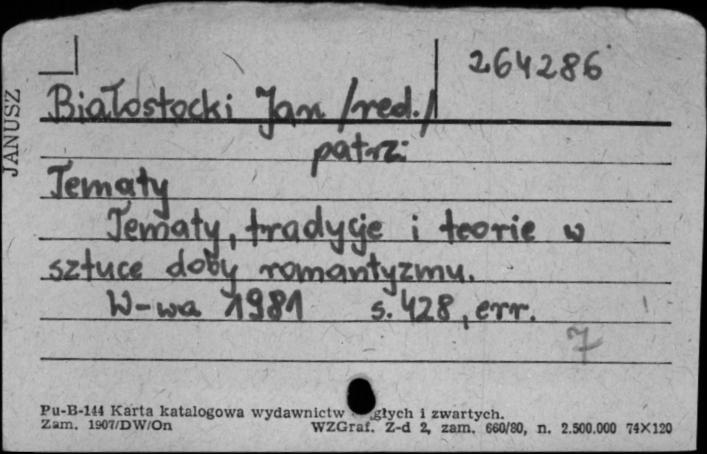 264286
Białostocki Jan /red./
patrz:
Tematy
Tematy, tradycje i teorie w
sztuce doby romantyzmu.
W-wa 1981 s. 428, err.
7
Pu-B-144 Karta katalogowa wydawnictw głych i zwartych.
Zam. 1907/DW/On WZGraf. Z-d 2, zam. 660/80, n. 2.500.000 74×120
JANUSZ